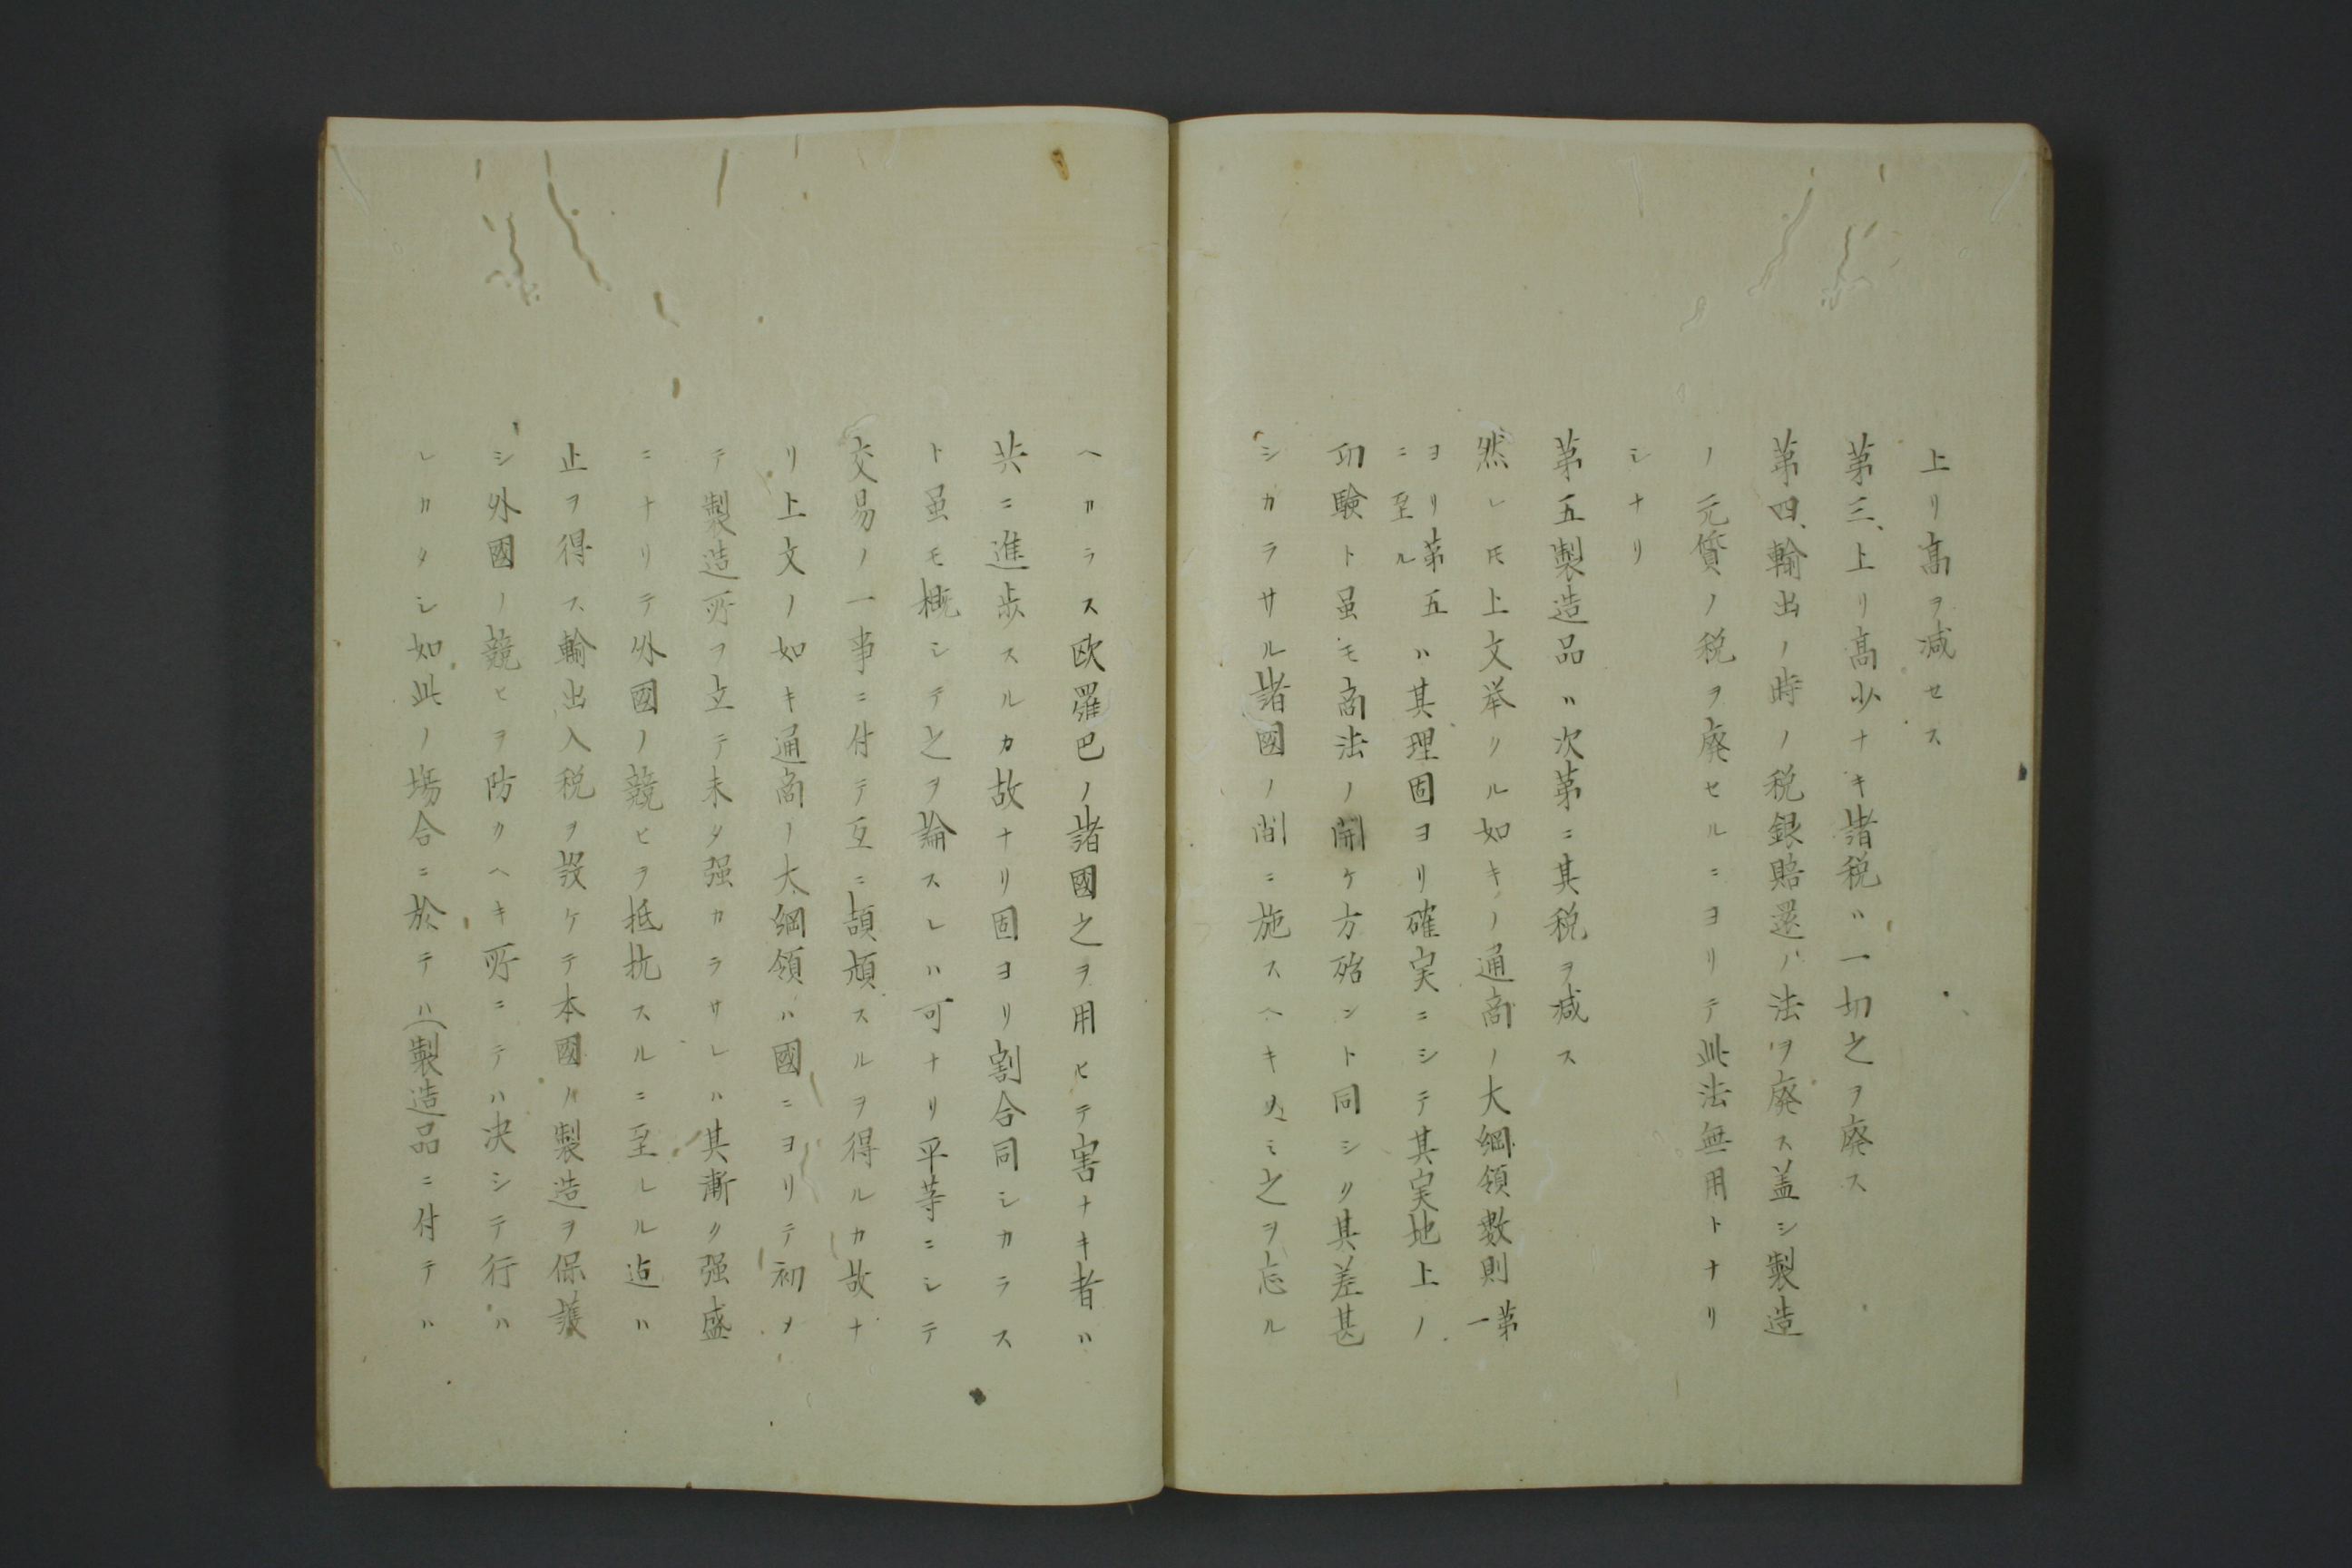 上リ高ヲ減セス
第三、上リ高少ナキ諸税ハ一切之ヲ廃ス
第四、輸出ノ時ノ税銀賠還ノ法ヲ廃ス盖シ製造
ノ元質ノ税ヲ廃セルニヨリテ此法無用トナリ
シナリ
第五製造品ハ次第ニ其税ヲ減ス
然レ𪜈上文挙クル如キノ通商ノ大綱領數則第一
ヨリ第五ニ至ルハ其理固ヨリ確実ニシテ其実地上ノ
功験ト虽モ商法ノ開ケ方殆ント同シク其差甚
シカラサル諸國ノ間ニ施スヘキノミ之ヲ忘ル
ヘカラス欧羅巴ノ諸國之ヲ用ヒテ害ナキ者ハ
共ニ進歩スルカ故ナリ固ヨリ割合同シカラス
ト虽モ概シテ之ヲ論スレハ可ナリ平等ニシテ
交易ノ一事ニ付テ互ニ頡頏スルヲ得ルカ故ナ
リ上文ノ如キ通商ノ大綱領ハ國ニヨリテ初メ
テ製造所ヲ立テ未タ强カラサレハ其漸ク强盛
ニナリテ外國ノ競ヒヲ抵抗スルニ至レル迠ハ
止ヲ得ス輸出入税ヲ設ケテ本國ノ製造ヲ保護
シ外國ノ競ヒヲ防クヘキ所ニテハ决シテ行ハ
レカタシ如此ノ場合ニ於テハ(製造品ニ付テハ